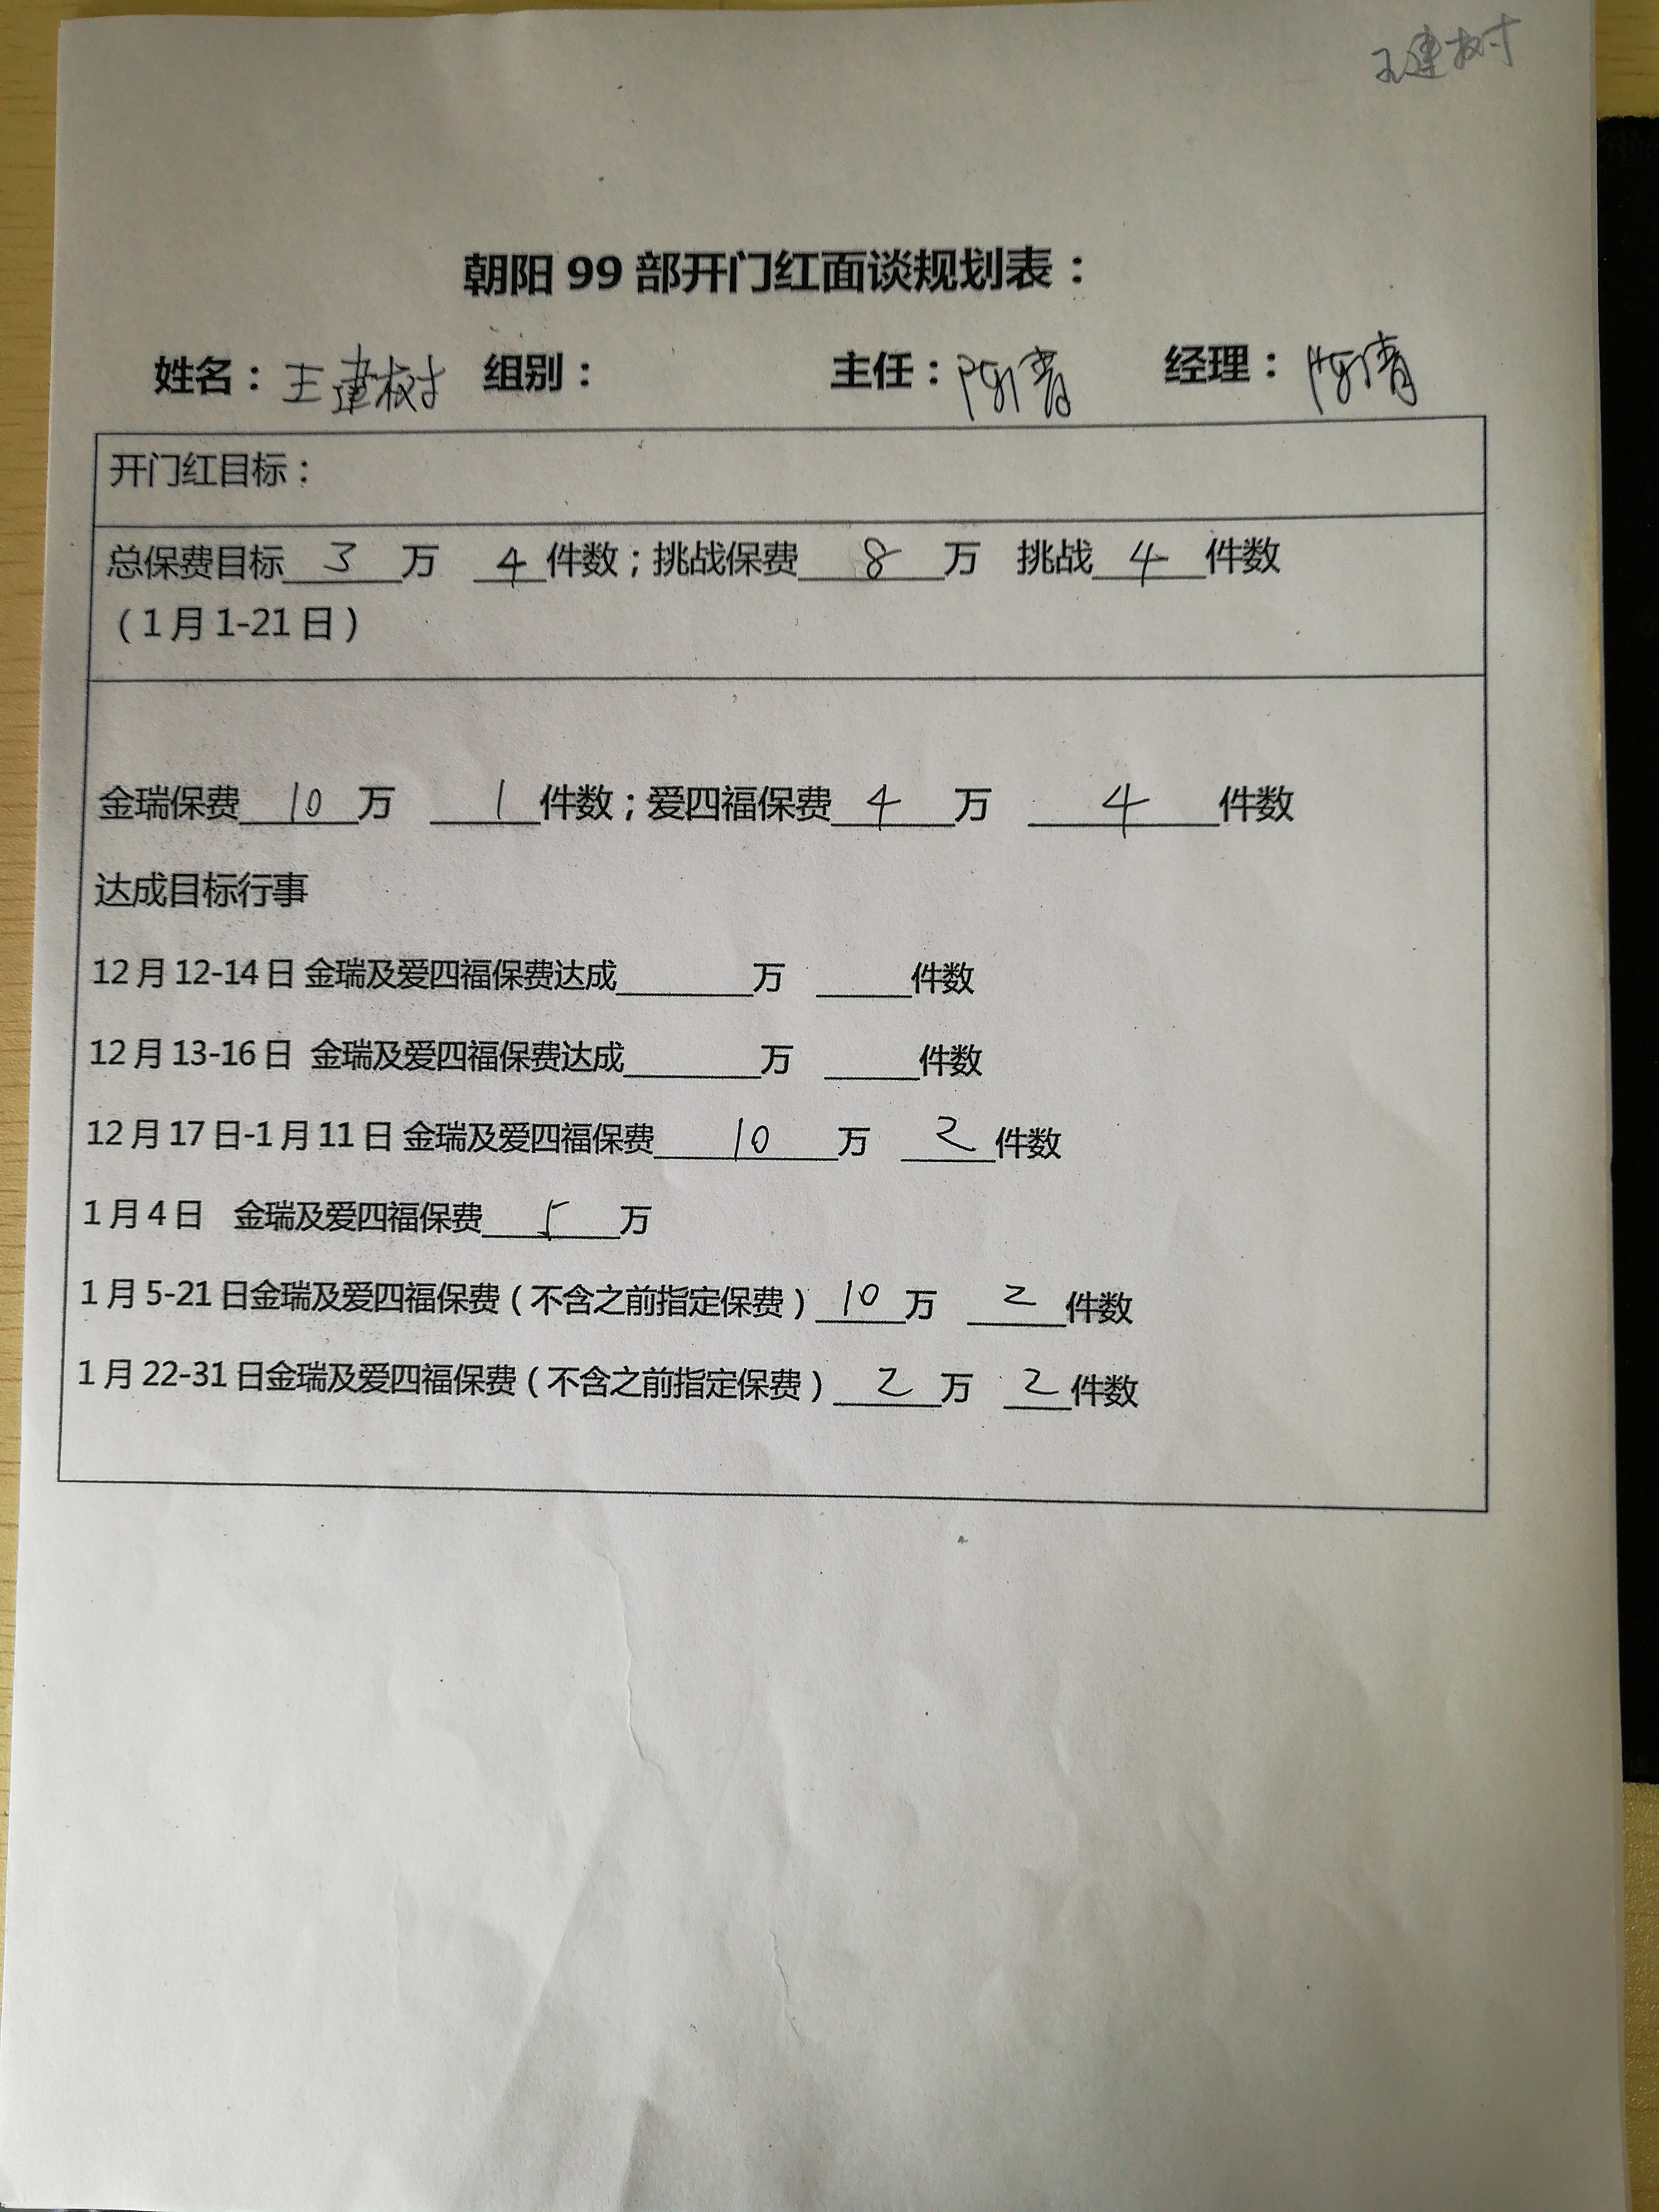 王建树
朝阳 99 部开门红面谈规划表：
姓名：王建树 组别： 主任： 经理：
开门红目标：
总保费目标 3 万 4 件数；挑战保费 8 万 挑战 4 件数
（1月1-21日）
金瑞保费 10 万 1 件数；爱四福保费 4 万 4 件数
达成目标行事
12月12-14日 金瑞及爱四福保费达成______万 ____件数
12月13-16日 金瑞及爱四福保费达成______万 ____件数
12月17日-1月11日 金瑞及爱四福保费 10 万 2 件数
1月4日 金瑞及爱四福保费 5 万
1月5-21日金瑞及爱四福保费（不含之前指定保费） 10 万 2 件数
1月22-31日金瑞及爱四福保费（不含之前指定保费） 2 万 2 件数